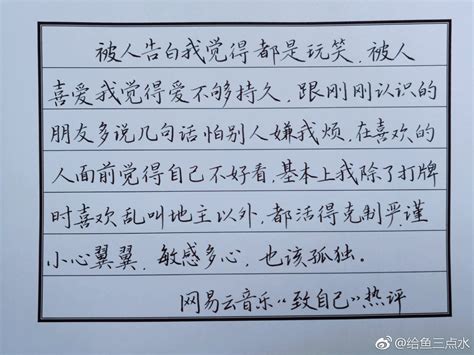 被人告白我觉得都是玩笑，被人
喜爱我觉得爱不够持久，跟刚刚认识的
朋友多说几句话怕别人嫌我烦，在喜欢的
人面前觉得自己不好看，基本上我除了打牌
时喜欢乱叫地主以外，都活得克制严谨
小心翼翼，敏感多心，也该孤独。
网易云音乐“致自己”热评
@给鱼三点水